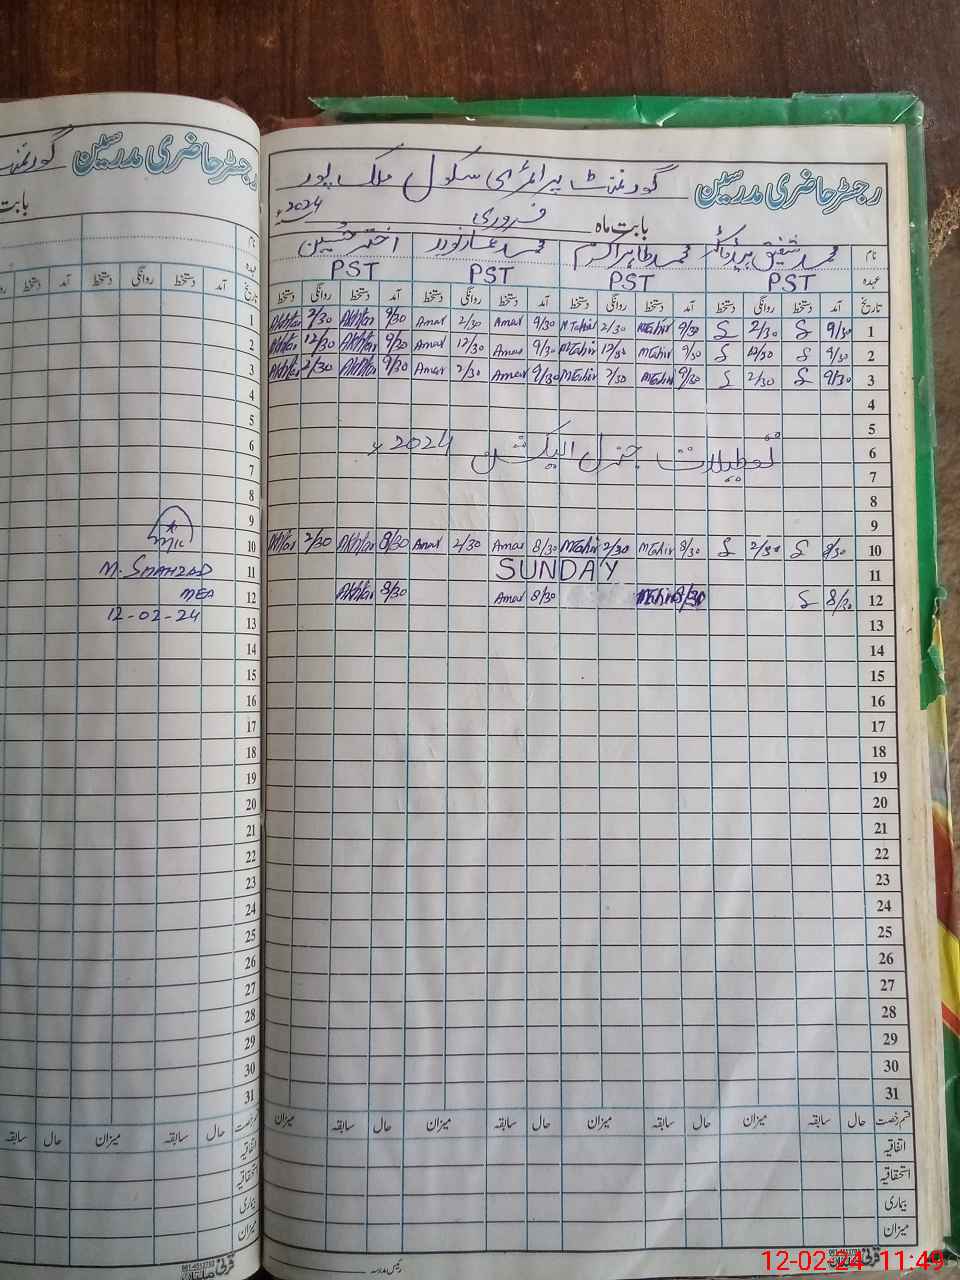 رجسٹر حاضری مدرسین گورنمنٹ
بابت
نام
عہدہ
تاریخ آمد دستخط روانگی دستخط آمد دستخط
1
2
3
4
5
6
7
8
9
10
11 M. SHAHZAD
12 MEA
13 12-02-24
14
15
16
17
18
19
20
21
22
23
24
25
26
27
28
29
30
31
قسم رخصت حال سابقہ میزان حال سابقہ
اتفاقیہ
استحقاقیہ
بیماری
میزان
رجسٹر حاضری مدرسین گورنمنٹ پرائمری سکول ملک پور
بابت ماہ فروری 2024ء
نام محمد شفیق ہیڈ محمد طاہر اکرم محمد عمار نور اختر حسین
عہدہ PST PST PST PST
تاریخ آمد دستخط روانگی دستخط آمد دستخط روانگی دستخط آمد دستخط روانگی دستخط آمد دستخط روانگی دستخط
1 9/30 S 2/30 S 9/30 MTahir 2/30 MTahir 9/30 Amar 2/30 Amar 9/30 Akhtar 2/30 Akhtar
2 9/30 S 12/30 S 9/30 MTahir 12/30 MTahir 9/30 Amar 12/30 Amar 9/30 Akhtar 12/30 Akhtar
3 9/30 S 2/30 S 9/30 MTahir 2/30 MTahir 9/30 Amar 2/30 Amar 9/30 Akhtar 2/30 Akhtar
4
5
6 تعطیلات جنرل الیکشن 2024ء
7
8
9
10 8/30 S 2/30 S 8/30 MTahir 2/30 MTahir 8/30 Amar 2/30 Amar 8/30 Akhtar 2/30 Akhtar
11 SUNDAY
12 8/30 S 8/30 MTahir 8/30 Amar 8/30 Akhtar
13
14
15
16
17
18
19
20
21
22
23
24
25
26
27
28
29
30
31
قسم رخصت حال سابقہ میزان حال سابقہ میزان حال سابقہ میزان حال سابقہ میزان
اتفاقیہ
استحقاقیہ
بیماری
میزان
رئیس مدرسہ
12-02-24 11:49